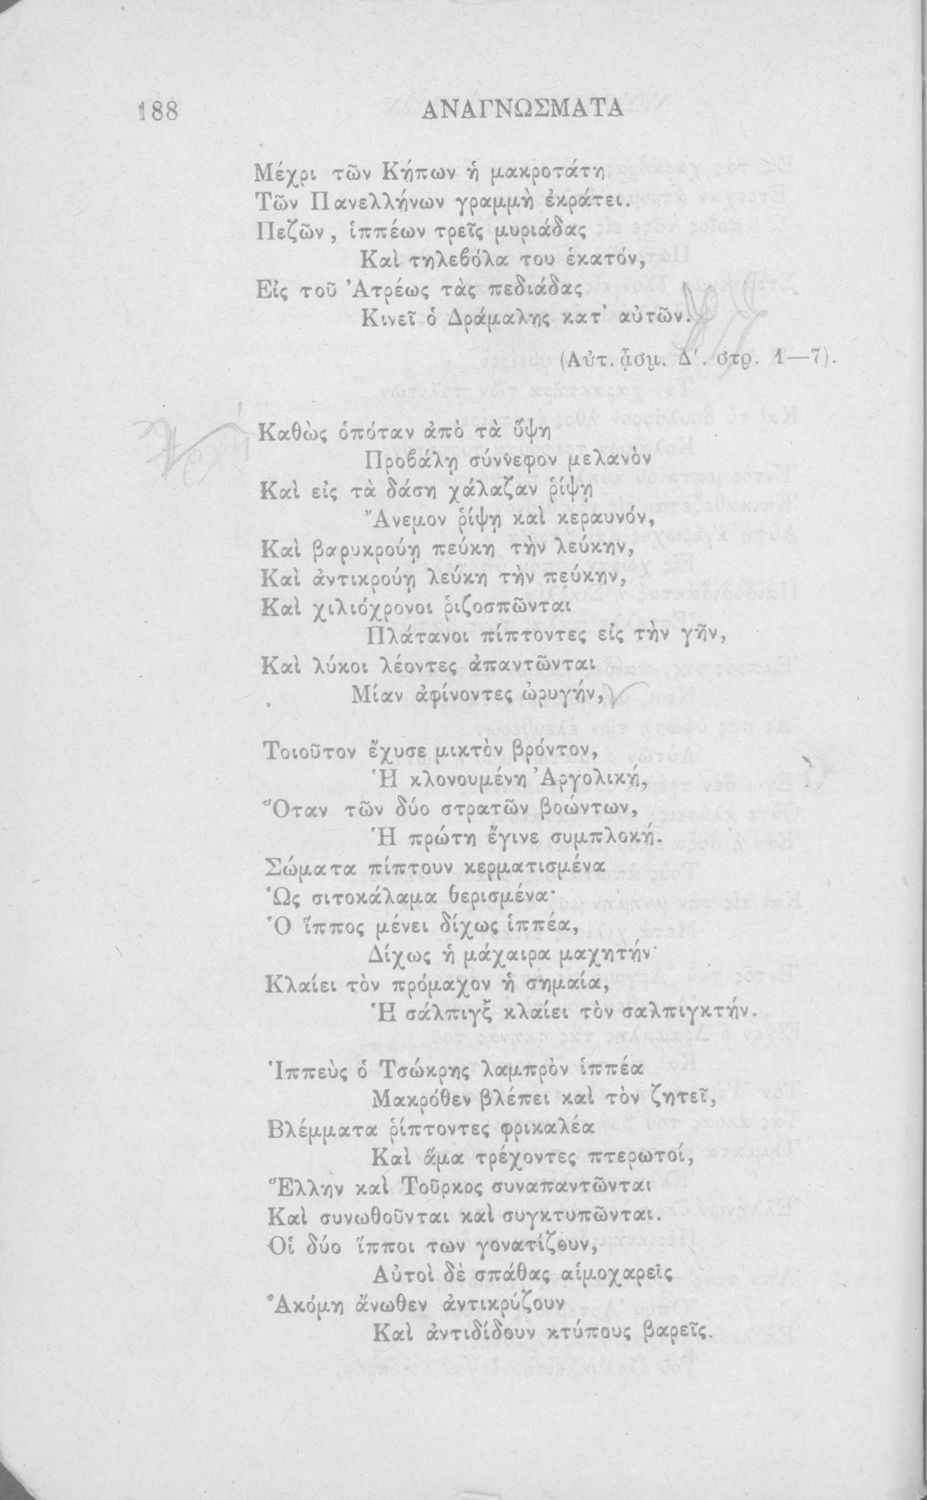 188 ΑΝΑΓΝΩΣΜΑΤΑ
Μέχρι τῶν Κήπων ἡ μακροτάτη
Τῶν Πανελλήνων γραμμὴ ἐκράτει.
Πεζῶν, ἱππέων τρεῖς μυριάδας
Καὶ τηλεβόλα του ἑκατόν,
Εἰς τοῦ Ἀτρέως τὰς πεδιάδας
Κινεῖ ὁ Δράμαλης κατ' αὐτῶν.
(Αὐτ. ᾆσμ. Δ'. στρ. 1—7).
Καθὼς ὁπόταν ἀπὸ τὰ ὕψη
Προβάλῃ σύννεφον μελανὸν
Καὶ εἰς τὰ δάση χάλαζαν ῥίψῃ
Ἄνεμον ῥίψῃ καὶ κεραυνόν,
Καὶ βαρυκρούῃ πεύκη τὴν λεύκην,
Καὶ ἀντικρούῃ λεύκη τὴν πεύκην,
Καὶ χιλιόχρονοι ῥιζοσπῶνται
Πλάτανοι πίπτοντες εἰς τὴν γῆν,
Καὶ λύκοι λέοντες ἀπαντῶνται
Μίαν ἀφίνοντες ὠρυγήν,
Τοιοῦτον ἔχυσε μικτὸν βρόντον,
Ἡ κλονουμένη Ἀργολική,
Ὅταν τῶν δύο στρατῶν βοώντων,
Ἡ πρώτη ἔγινε συμπλοκή.
Σώματα πίπτουν κερματισμένα
Ὡς σιτοκάλαμα θερισμένα·
Ὁ ἵππος μένει δίχως ἱππέα,
Δίχως ἡ μάχαιρα μαχητήν·
Κλαίει τὸν πρόμαχον ἡ σημαία,
Ἡ σάλπιγξ κλαίει τὸν σαλπιγκτήν.
Ἱππεὺς ὁ Τσώκρης λαμπρὸν ἱππέα
Μακρόθεν βλέπει καὶ τὸν ζητεῖ,
Βλέμματα ῥίπτοντες φρικαλέα
Καὶ ἅμα τρέχοντες πτερωτοί,
Ἕλλην καὶ Τοῦρκος συναπαντῶνται
Καὶ συνωθοῦνται καὶ συγκτυπῶνται.
Οἱ δύο ἵπποι των γονατίζουν,
Αὐτοὶ δὲ σπάθας αἱμοχαρεῖς
Ἀκόμη ἄνωθεν ἀντικρύζουν
Καὶ ἀντιδίδουν κτύπους βαρεῖς.